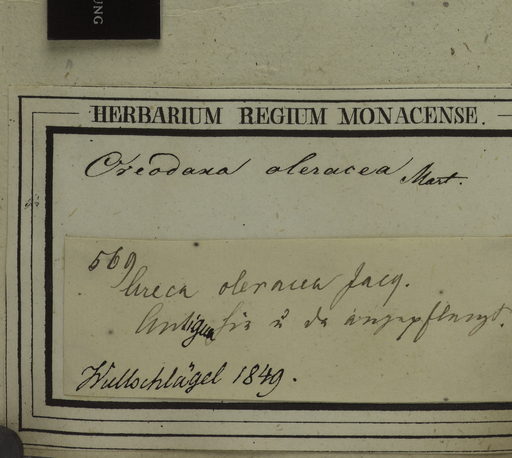 UNG
HERBARIUM REGIUM MONACENSE.
Oreodoxa oleracea Mart.
569
Areca oleracea Jacq.
Antigua hie u da angepflanzt.
Wullschlägel 1849.